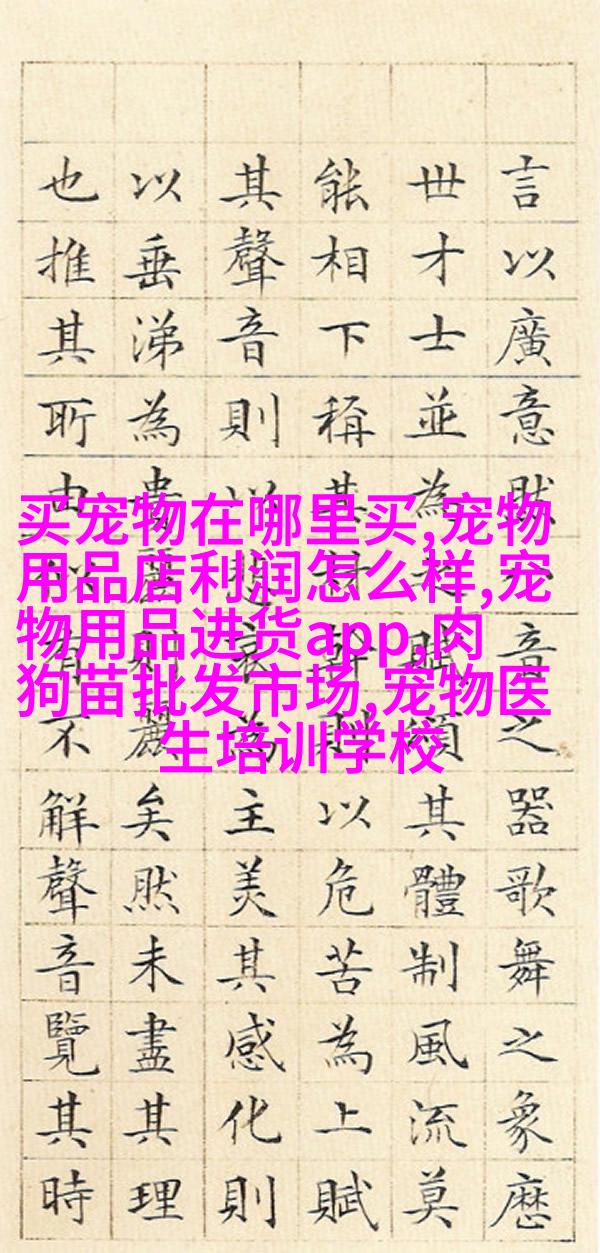 言以廣意然音之器歌舞之象歷
世才士並為之賦頌其體制風流莫
能相下稱其材幹則以危苦為上賦
其聲音則以哀為主美其感化則
以垂涕為貴麗則麗矣然未盡其理
也推其所由似有不解聲音覽其時
买宠物在哪里买,宠物
用品店利润怎么样,宠
物用品进货app,肉
狗苗批发市场,宠物医
生培训学校